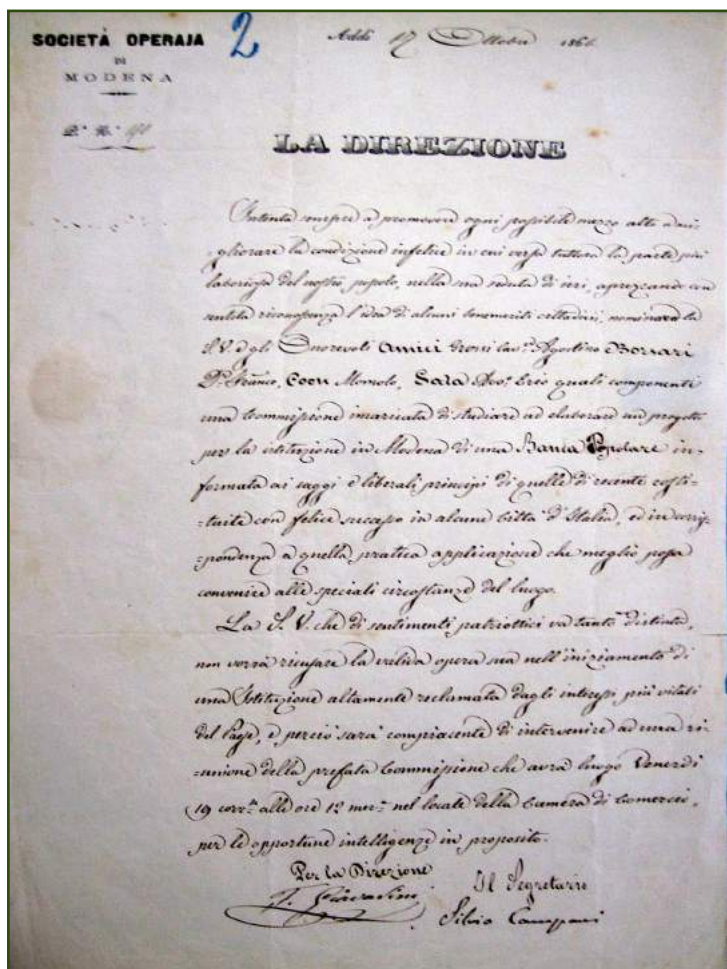 SOCIETÀ OPERAJA
DI
MODENA
2
Addì 17 Ottobre 186
P. N.
LA DIREZIONE
Intenta sempre a promovere ogni possibile mezzo atto a mi-
=gliorare la condizione infelice in cui versa tuttora la parte più
laboriosa del nostro popolo, nella sua seduta di ieri, aprezzando con
sentita riconoscenza l'idea di alcuni benemeriti cittadini, nominava la
S.V. e gli Onorevoli Amici Grossi Cav.e Agostino Borsari
D.r Franco, Coen Momolo, Sala Avv.o Erio quali componenti
una Commissione incaricata di studiare ed elaborare un progetto
per la istituzione in Modena di una Banca Popolare in-
formata ai saggi e liberali principi di quelle di recente costi-
=tuite con felice successo in alcune Città d'Italia, ed in corri-
=pondenza a quella pratica applicazione che meglio possa
convenire alle speciali circostanze del luogo.
La S.V. che di sentimenti patriottici va tanto distinta,
non vorrà ricusare la valida opera sua nell'iniziamento di
una Istituzione altamente reclamata dagli interessi più vitali
del Paese, e perciò sarà compiacente di intervenire ad una ri-
=unione della prefata Commissione che avrà luogo Venerdì
19 corr.te alle ore 12 mer.e nel locale della Camera di Comercio,
per le opportune intelligenze in proposito.
Per la Direzione
Il Segretario
Silvio Campani